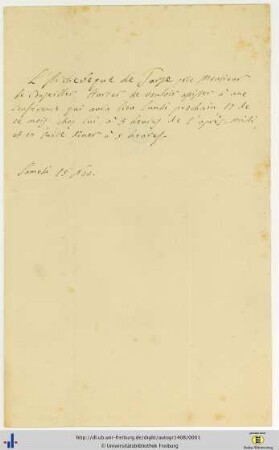 L'Archevêque de prie Monsieur
le Conseiller de vouloir assister à une
Conférence qui aura lieu Lundi prochain 17 de
ce mois chez lui à 3 heures de l'après-midi
et en suite diner à 5 heures.
Samedi 15
http://dl.ub.uni-freiburg.de/diglit/autogr1408/0001
© Universitätsbibliothek Freiburg